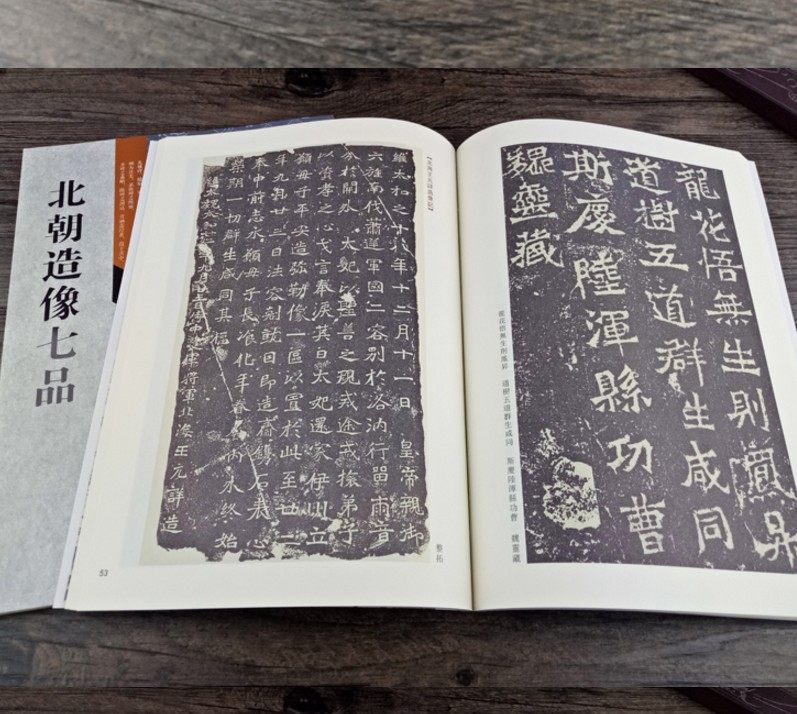 北朝造像七品
【北海王元詳造像記】
維太和之十八年十二月十一日皇帝親御
六旌南伐蕭逆軍國二容別於洛汭行留兩音
分於闕外太妃以聖善之規戒途戒旅弟子
以資孝之心戈言奉淚其日太妃還家伊川立
願母子平安造彌勒像一區以置於此至廿二
年九月廿三日法容剋就因即造齋鐫石表心
奉申前志永願母子長瑜化年眷屬內外終始
榮期一切群生咸同其福
維太和廿二年九月廿三日侍中護軍將軍北海王元詳造
整拓
53
龍花悟無生則鳳昇
道樹五道群生咸同
斯慶陸渾縣功曹
魏靈藏
龍花悟無生則鳳昇 道樹五道群生咸同 斯慶陸渾縣功曹 魏靈藏